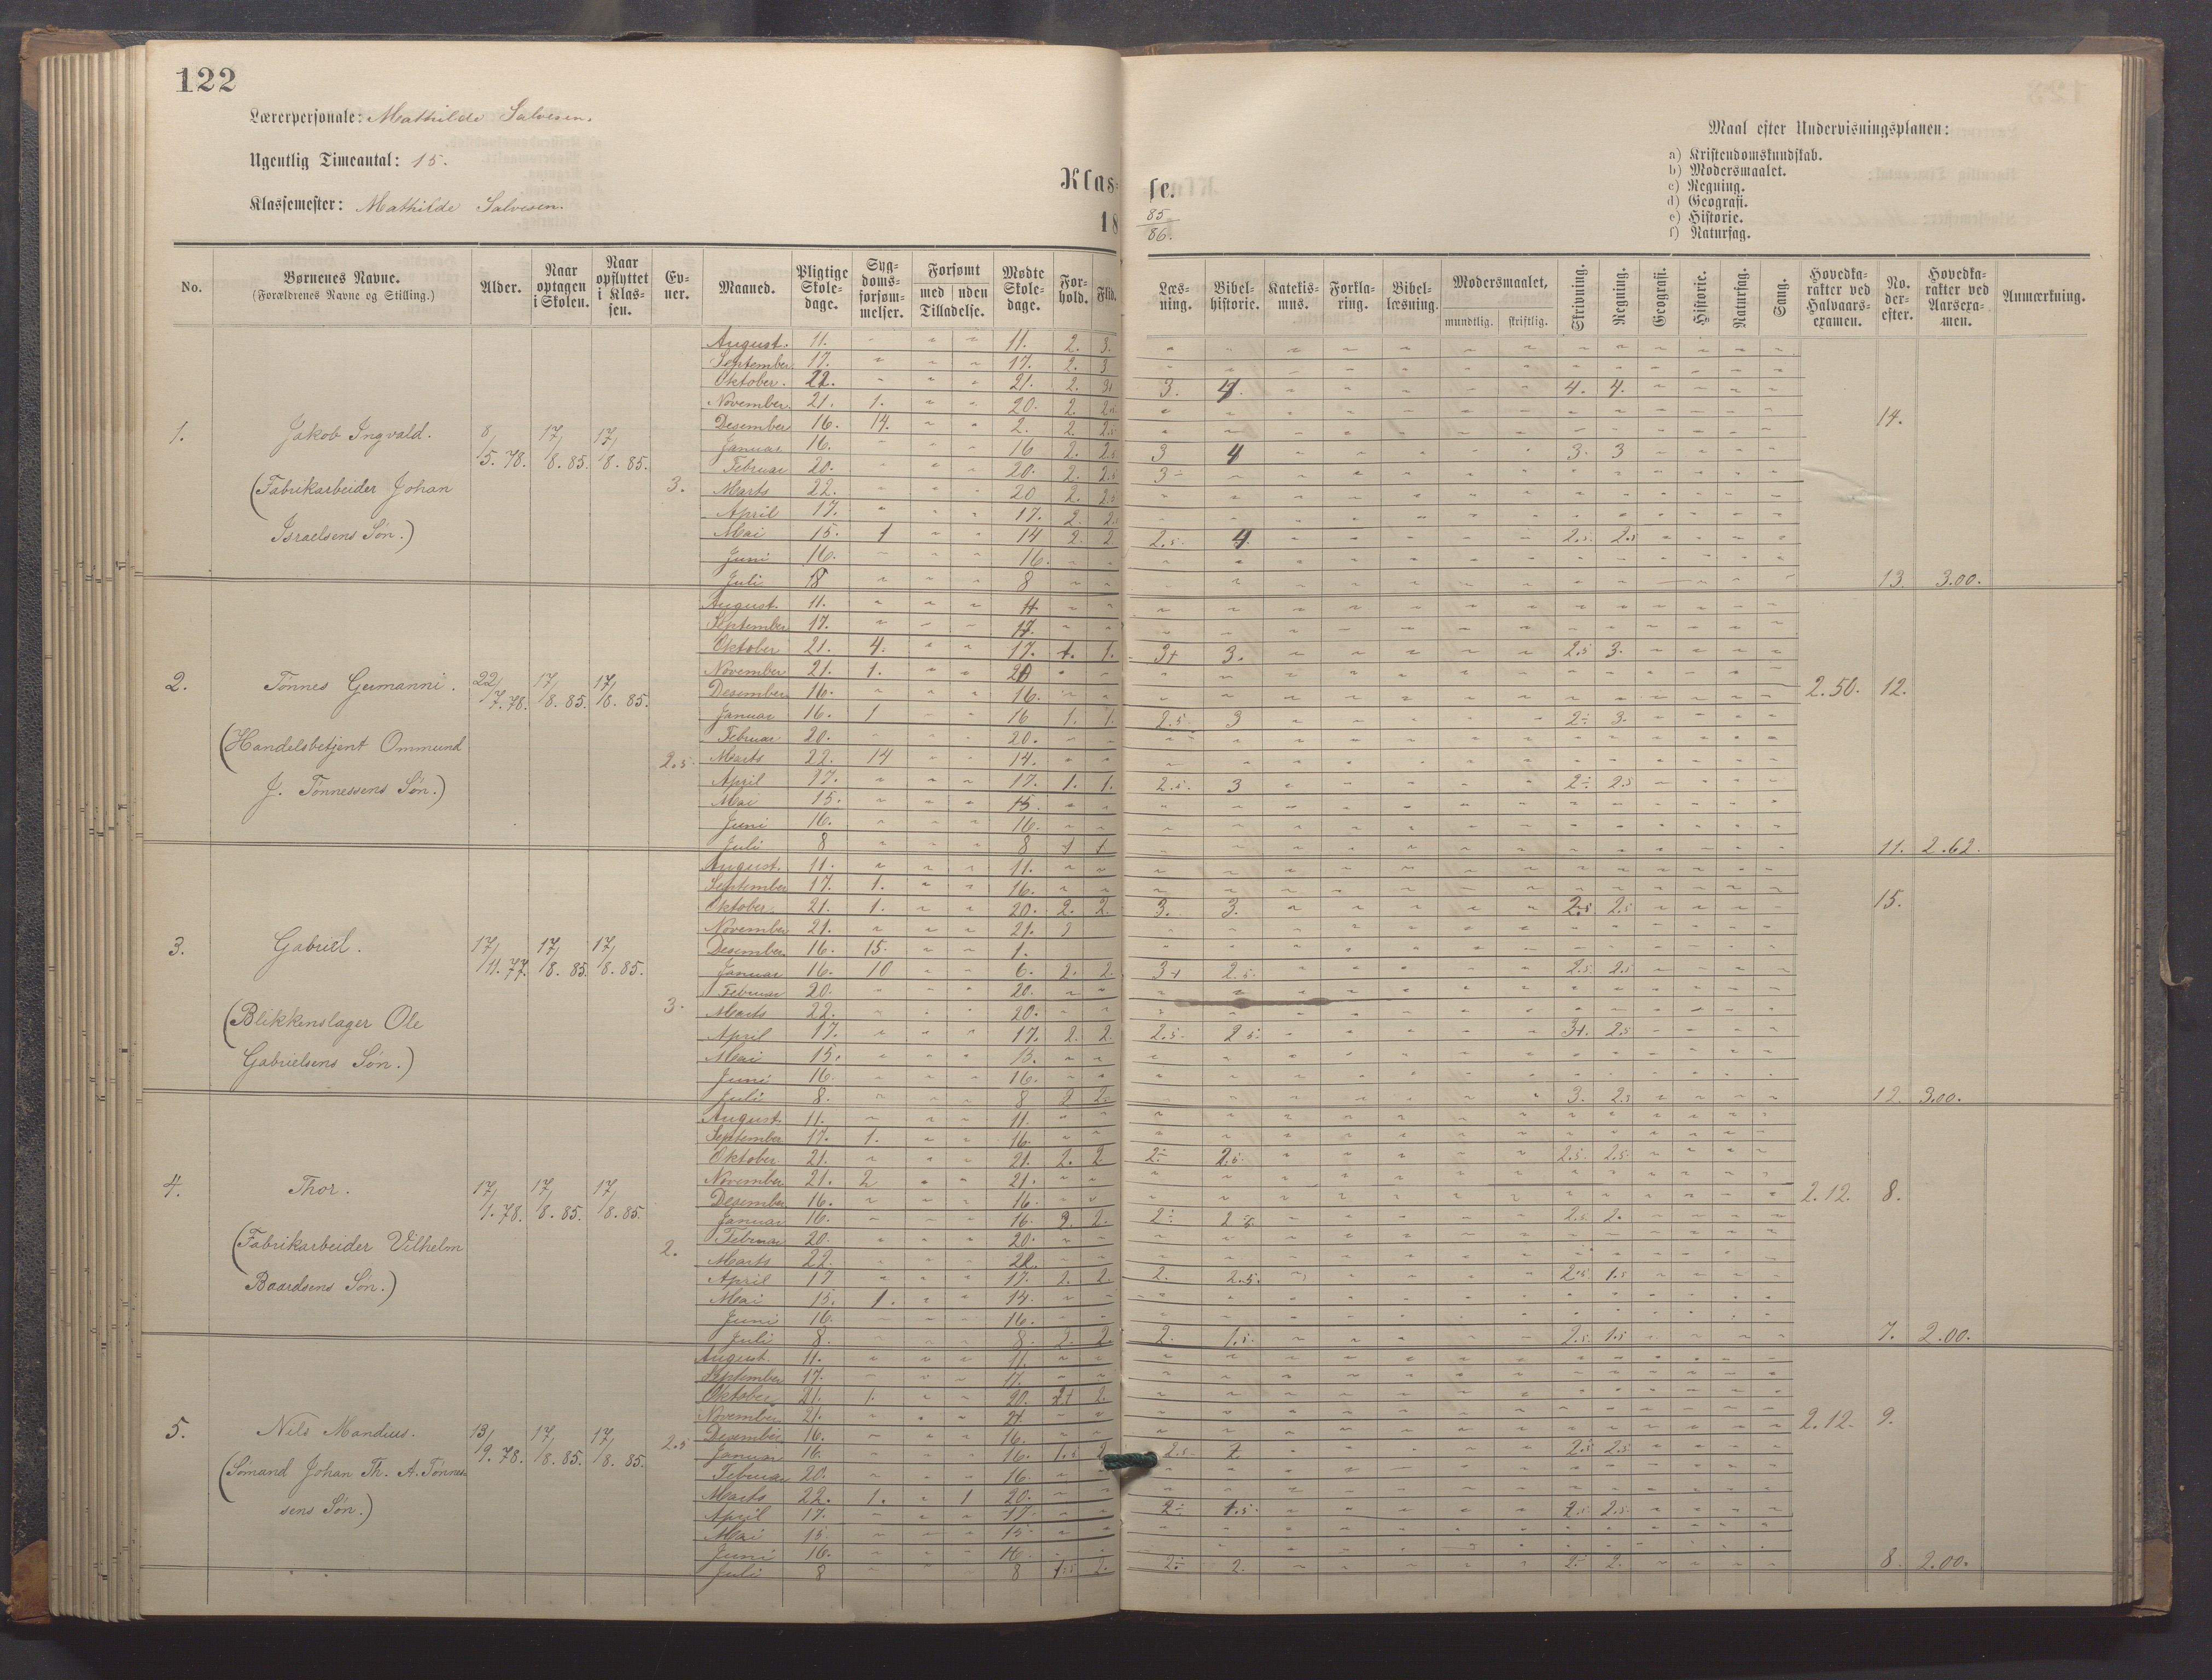 122
Lærerpersonale: Mathilde Salvesen.
Ugentlig Timeantal: 15.
Klassemester: Mathilde Salvesen.
Klasse.
18 85/86.
Maal efter Undervisningsplanen:
a) Kristendomskundskab.
b) Modersmaalet.
c) Regning.
d) Geografi.
e) Historie.
f) Naturfag.
No. | Børnenes Navne. (Forældrenes Navne og Stilling.) | Alder. | Naar optagen i Skolen. | Naar opflyttet i Klassen. | Evner. | Maaned. | Pligtige Skoledage. | Sygdomsforsømmelser. | Forsømt med Tilladelse. | uden Tilladelse. | Mødte Skoledage. | Forhold. | Flid. | Læsning. | Bibelhistorie. | Katekismus. | Forklaring. | Bibellæsning. | Modersmaalet, mundtlig. | skriftlig. | Skrivning. | Regning. | Geografi. | Historie. | Naturfag. | Sang. | Hovedkarakter ved Halvaarsexamen. | No. derefter. | Hovedkarakter ved Aarsexamen. | Anmærkning.
1. Jakob Ingvald. 8/5. 78. 17/8. 85. 17/8. 85. 3.
(Fabrikarbeider Johan
Israelsens Søn.)
August. 11. 11. 2. 3.
September 17. 17. 2. 3
Oktober. 22. 21. 2. 3+ 3. 4. 4. 4.
November. 21. 1. 20. 2.
Desember 16. 14. 2. 2. 2.5 14.
Januar 16. 16 2. 2.5 3 4 3. 3
Februar 20. 20. 2. 2.5 3÷
Marts 22. 20 2. 2.5
April 17. 17. 2. 2.
Mai 15. 1 14 2. 2. 2.5. 4. 2.5. 2.5
Juni 16. 16.
Juli 8 8 13. 3.00.
2. Tønnes Germanni. 22/7. 78. 17/8. 85. 17/8. 85. 2.5
(Handelsbetjent Ommund
J. Tønnessens Søn.)
August. 11. 11.
September 17. 17.
Oktober 21. 4. 17. 1. 1. 3+ 3. 2.5 3.
November 21. 1. 20
Desember 16. 16. 2.50. 12.
Januar 16. 1 16 1. 1. 2.5 3 2÷ 3.
Februar 20. 20.
Marts 22. 14 14.
April 17. 17. 1. 1. 2.5. 3 2÷ 2.5
Mai 15. 15.
Juni 16. 16.
Juli 8 8 1 1 11. 2.62.
3. Gabriel. 17/11. 77. 17/8. 85. 17/8. 85. 3.
(Blikkenslager Ole
Gabrielsens Søn.)
August. 11. 11.
September 17. 1. 16.
Oktober 21. 1. 20. 2. 2. 3. 3. 2.5 2.5 15.
November 21. 21.
Desember 16. 15. 1.
Januar 16. 10 6. 2. 2. 3+ 2.5. 2.5. 2.5
Februar 20. 20.
Marts 22. 20.
April 17. 17. 2. 2. 2.5. 2.5. 3+. 2.5
Mai 15. 15.
Juni 16. 16.
Juli 8. 8 2 2. 3. 2.5 12. 3.00.
4. Thor. 17/1. 78. 17/8. 85. 17/8. 85. 2.
(Fabrikarbeider Vilhelm
Baardsens Søn.)
August. 11. 11.
September 17. 1. 16.
Oktober 21. 21. 2. 2 2÷ 2.5. 2.5. 2.5.
November 21. 2 21.
Desember 16. 16. 2.12. 8.
Januar 16. 16. 2. 2. 2÷ 2.5. 2.
Februar 20. 20.
Marts 22. 22.
April 17 17. 2. 2. 2. 2.5. 2.5 1.5
Mai 15. 1. 14.
Juni 16. 16.
Juli 8. 8. 2. 2. 2. 1.5. 2.5 1.5 7. 2.00.
5. Nils Mandius. 13/9. 78. 17/8. 85. 17/8. 85. 2.5
(Sømand Johan Th. A. Tønnes-
sens Søn.)
August. 11. 11.
September 17. 17.
Oktober 21. 1. 20. 2+ 2.
November 21. 21.
Desember 16. 16. 2.12. 9.
Januar 16. 16. 1.5 2 2.5 2. 2.5 2.5
Februar 20. 16.
Marts 22. 1. 1 20.
April 17. 17. 2÷ 1.5. 2.5 2.5
Mai 15 15.
Juni 16. 16.
Juli 8 8 1.5 2. 2÷ 2. 2÷ 2. 8. 2.00.